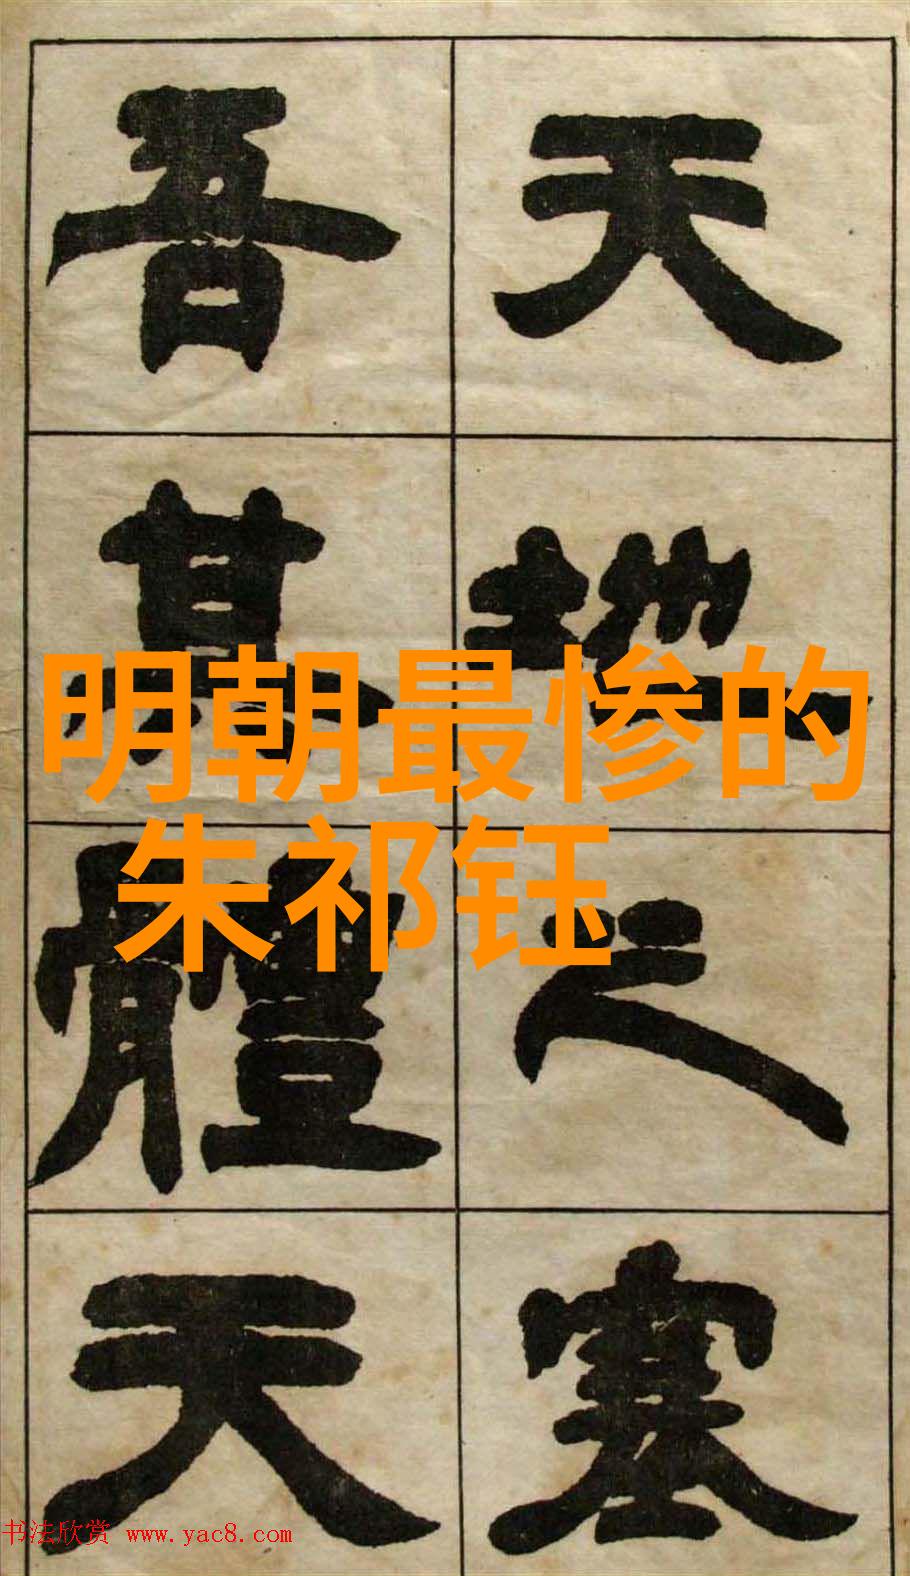 明朝最惨的
朱祁钰
天地之塞
吾其體天
书法欣赏 www.yac8.com